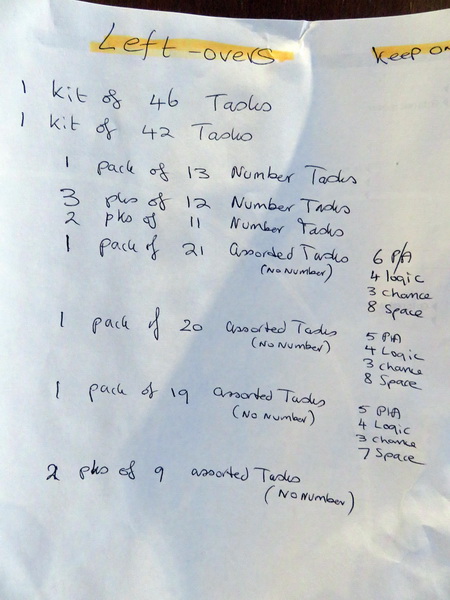 Left-overs
Keep o
1 kit of 46 Tasks
1 kit of 42 Tasks
1 pack of 13 Number Tasks
3 pks of 12 Number Tasks
2 pks of 11 Number Tasks
1 pack of 21 assorted Tasks
(No Number)
6 P/A
4 logic
3 chance
8 Space
1 pack of 20 assorted Tasks
(No Number)
5 P/A
4 Logic
3 chance
8 Space
1 pack of 19 assorted Tasks
(No Number)
5 P/A
4 Logic
3 chance
7 Space
2 pks of 9 assorted Tasks
(No Number)